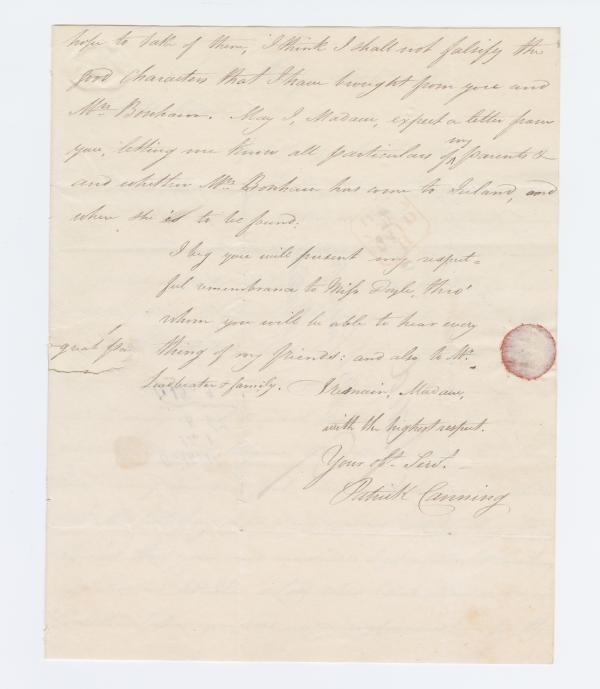 hope to take of them, I think I shall not falsify the
good characters that I have brought from you and
Mrs Bonham. May I, Madam, expect a letter from
you, letting me know all particulars of my parents &
and whether Mrs Bonham has come to Ireland, and
where she is to be found:
I beg you will present my respect=
ful remembrance to Miss Doyle, thro'
whom you will be able to hear every
thing of my friends: and also to Mr.
Leadbeater & family. I remain, Madam,
with the highest respect.
Your obt. Servt.
Patrick Canning